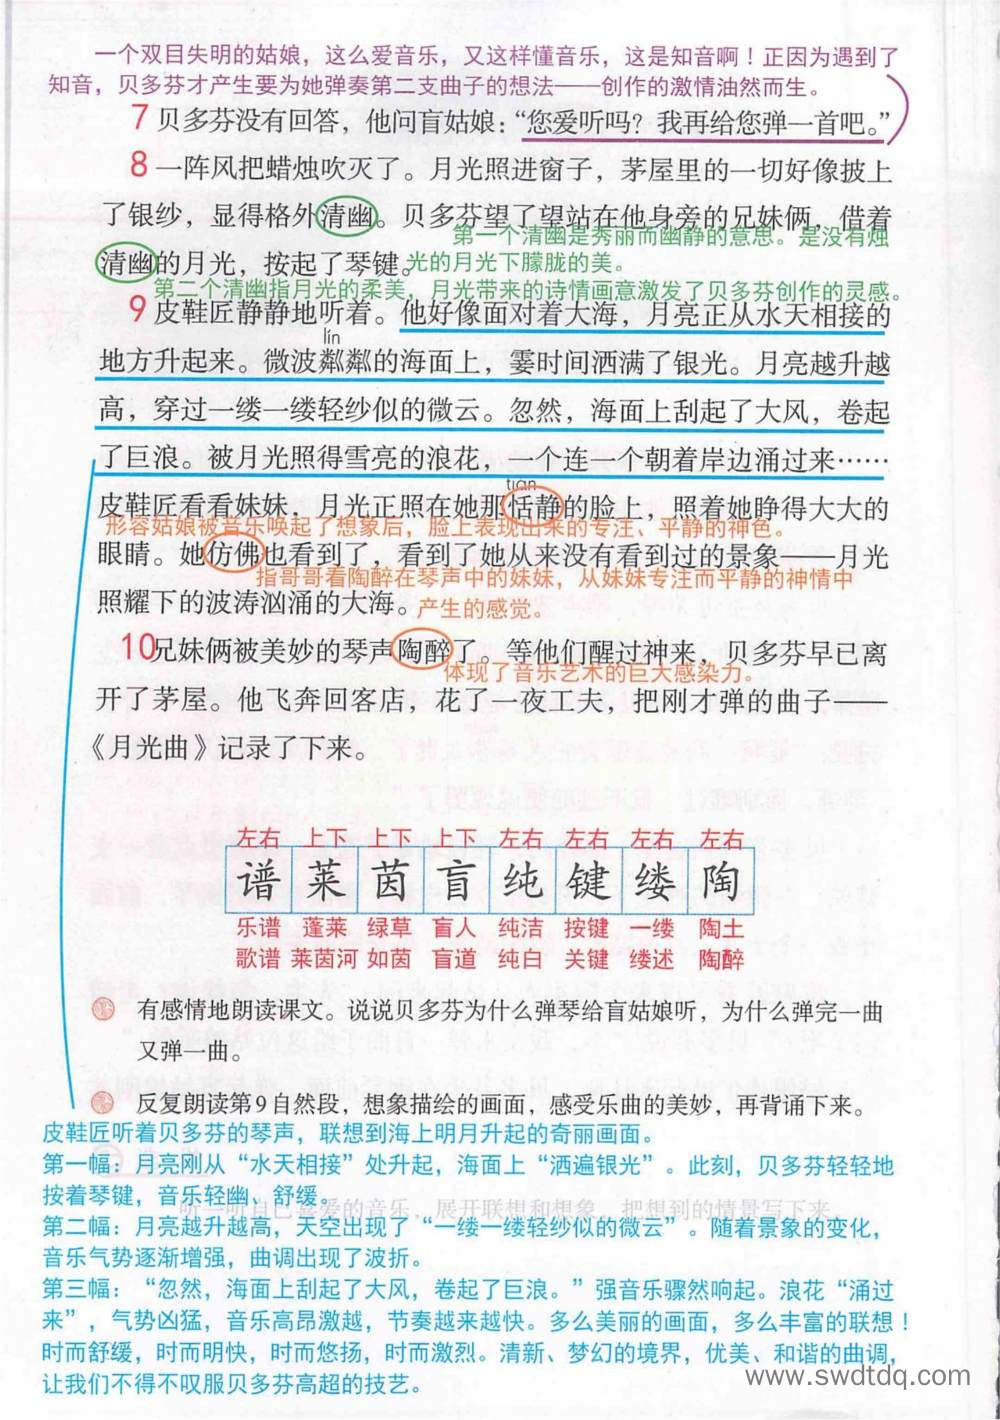 一个双目失明的姑娘，这么爱音乐，又这样懂音乐，这是知音啊！正因为遇到了
知音，贝多芬才产生要为她弹奏第二支曲子的想法——创作的激情油然而生。
7 贝多芬没有回答，他问盲姑娘：“您爱听吗？我再给您弹一首吧。”
8 一阵风把蜡烛吹灭了。月光照进窗子，茅屋里的一切好像披上
了银纱，显得格外清幽。贝多芬望了望站在他身旁的兄妹俩，借着
第一个清幽是秀丽而幽静的意思。是没有烛
清幽的月光，按起了琴键。
光的月光下朦胧的美。
第二个清幽指月光的柔美，月光带来的诗情画意激发了贝多芬创作的灵感。
9 皮鞋匠静静地听着。他好像面对着大海，月亮正从水天相接的
lín
地方升起来。微波粼粼的海面上，霎时间洒满了银光。月亮越升越
高，穿过一缕一缕轻纱似的微云。忽然，海面上刮起了大风，卷起
了巨浪。被月光照得雪亮的浪花，一个连一个朝着岸边涌过来……
tián
皮鞋匠看看妹妹，月光正照在她那恬静的脸上，照着她睁得大大的
形容姑娘被音乐唤起了想象后，脸上表现出来的专注、平静的神色。
眼睛。她仿佛也看到了，看到了她从来没有看到过的景象——月光
指哥哥看陶醉在琴声中的妹妹，从妹妹专注而平静的神情中
照耀下的波涛汹涌的大海。
产生的感觉。
10 兄妹俩被美妙的琴声陶醉了。等他们醒过神来，贝多芬早已离
体现了音乐艺术的巨大感染力。
开了茅屋。他飞奔回客店，花了一夜工夫，把刚才弹的曲子——
《月光曲》记录了下来。
左右 上下 上下 上下 左右 左右 左右 左右
谱 莱 茵 盲 纯 键 缕 陶
乐谱 蓬莱 绿草 盲人 纯洁 按键 一缕 陶土
歌谱 莱茵河 如茵 盲道 纯白 关键 缕述 陶醉
有感情地朗读课文。说说贝多芬为什么弹琴给盲姑娘听，为什么弹完一曲
又弹一曲。
反复朗读第9自然段，想象描绘的画面，感受乐曲的美妙，再背诵下来。
皮鞋匠听着贝多芬的琴声，联想到海上明月升起的奇丽画面。
第一幅：月亮刚从“水天相接”处升起，海面上“洒遍银光”。此刻，贝多芬轻轻地
按着琴键，音乐轻幽、舒缓。
听一听自己喜爱的音乐，展开联想和想象，把想到的情景写下来。
第二幅：月亮越升越高，天空出现了“一缕一缕轻纱似的微云”。随着景象的变化，
音乐气势逐渐增强，曲调出现了波折。
第三幅：“忽然，海面上刮起了大风，卷起了巨浪。”强音乐骤然响起。浪花“涌过
来”，气势凶猛，音乐高昂激越，节奏越来越快。多么美丽的画面，多么丰富的联想！
时而舒缓，时而明快，时而悠扬，时而激烈。清新、梦幻的境界，优美、和谐的曲调，
让我们不得不叹服贝多芬高超的技艺。
www.swdtdq.com